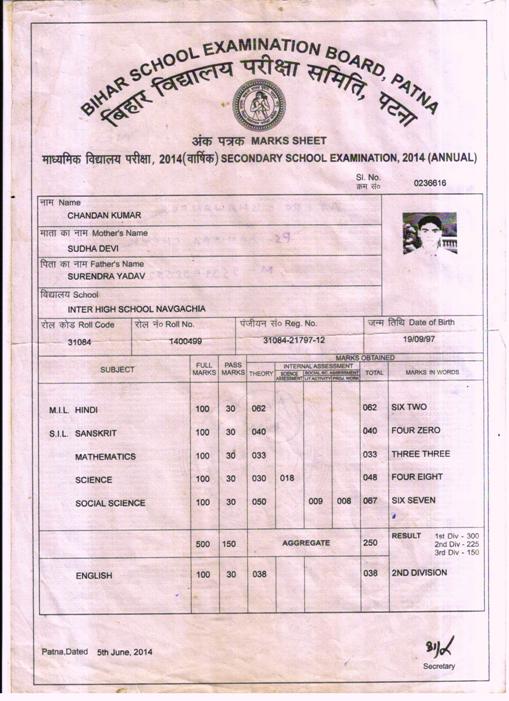 BIHAR SCHOOL EXAMINATION BOARD, PATNA
बिहार विद्यालय परीक्षा समिति, पटना
अंक पत्रक MARKS SHEET
माध्यमिक विद्यालय परीक्षा, 2014(वार्षिक) SECONDARY SCHOOL EXAMINATION, 2014 (ANNUAL)
Sl. No.
क्रम सं० 0236616
नाम Name
CHANDAN KUMAR
माता का नाम Mother's Name
SUDHA DEVI
पिता का नाम Father's Name
SURENDRA YADAV
विद्यालय School
INTER HIGH SCHOOL NAVGACHIA
रोल कोड Roll Code रोल नं० Roll No. पंजीयन सं० Reg. No. जन्म तिथि Date of Birth
31084 1400499 31084-21797-12 19/09/97
MARKS OBTAINED
SUBJECT FULL MARKS PASS MARKS THEORY INTERNAL ASSESSMENT TOTAL MARKS IN WORDS
SCIENCE ASSESSMENT SOCIAL SC. ASSESSMENT
LIT ACTIVITY PROJ. WORK
M.I.L. HINDI 100 30 062 062 SIX TWO
S.I.L. SANSKRIT 100 30 040 040 FOUR ZERO
MATHEMATICS 100 30 033 033 THREE THREE
SCIENCE 100 30 030 018 048 FOUR EIGHT
SOCIAL SCIENCE 100 30 050 009 008 067 SIX SEVEN
500 150 AGGREGATE 250 RESULT 1st Div - 300
2nd Div - 225
3rd Div - 150
ENGLISH 100 30 038 038 2ND DIVISION
Patna,Dated 5th June, 2014
Secretary